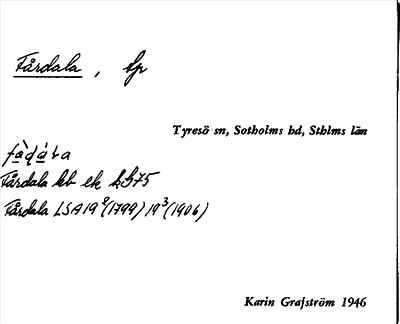 Fårdala, tp
Tyresö sn, Sotholms hd, Sthlms län
Fårdala kb ek bl 75
Fårdala LSA 19²(1799) 19³(1906)
Karin Grafström 1946